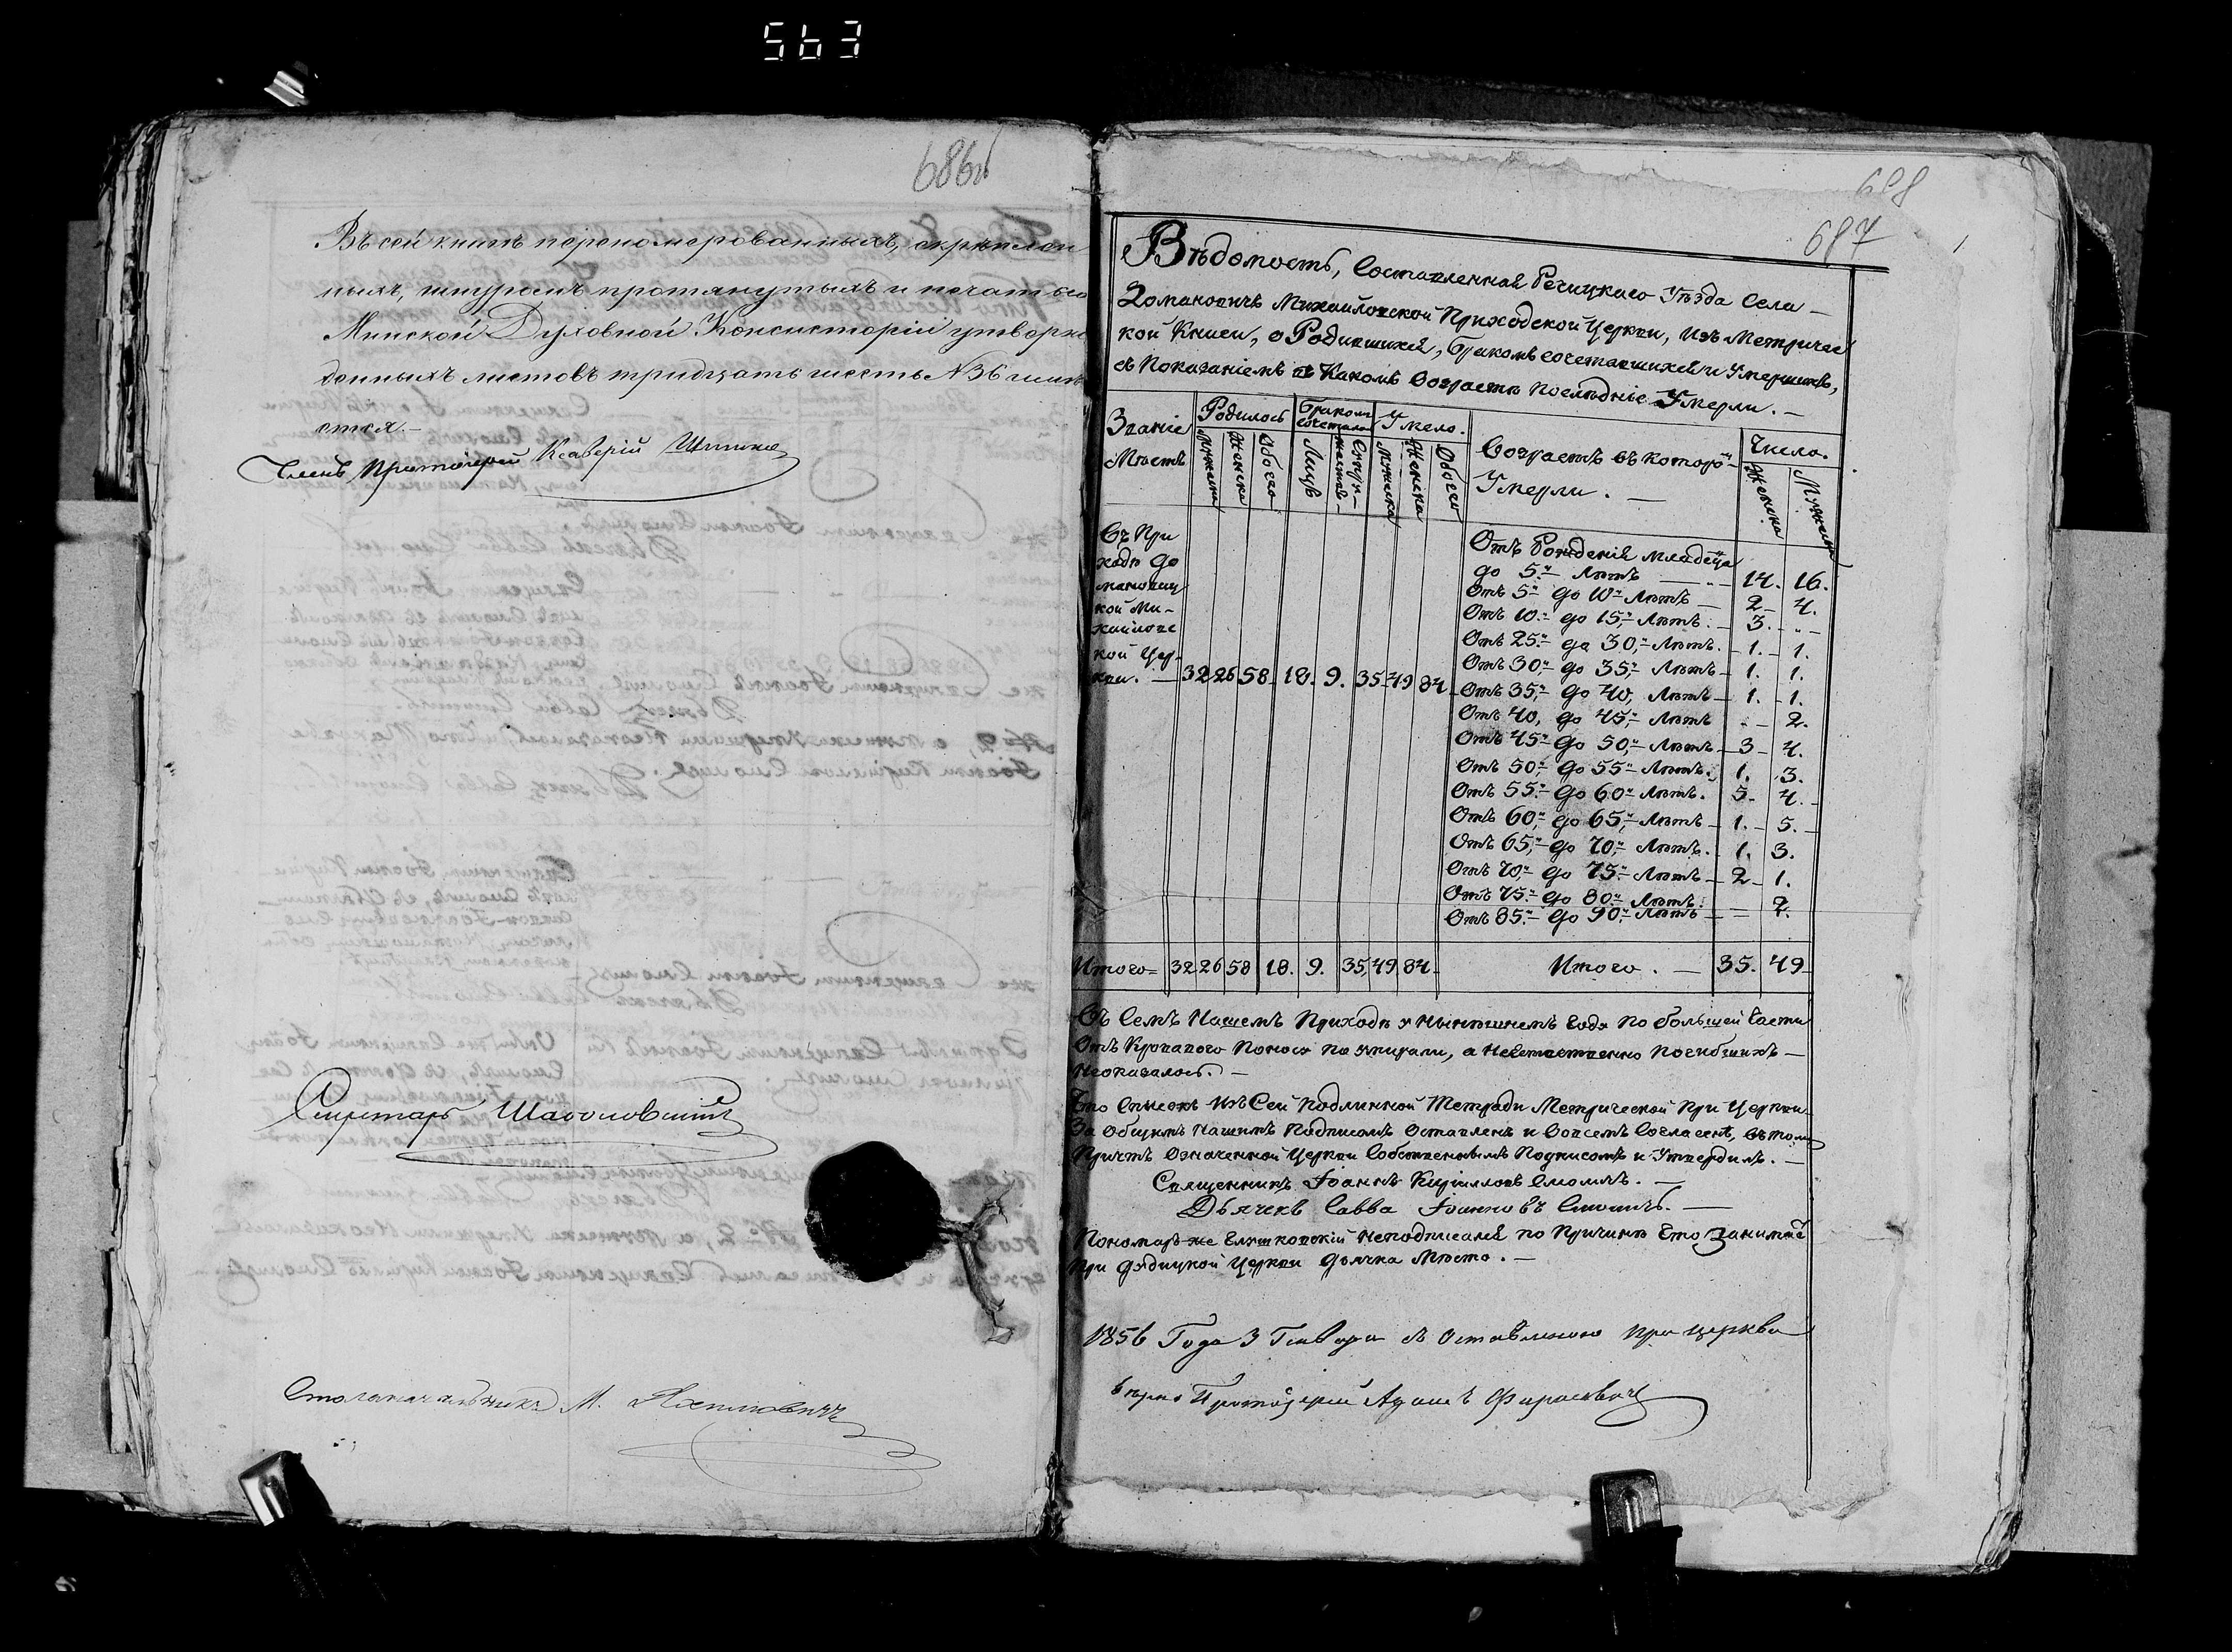 563
686об
Въ сей книгѣ переномерованныхъ, скрѣплен
ныхъ, шнуромъ протянутыхъ и печатью
Минской Духовной Консисторіи утверж
денныхъ листовъ тридцать шесть №36 имѣ
ется.
Членъ, Протоіерей Ксаверій
Секретарь
Столоначальникъ М.
687
Вѣдомость, Составленная Речицкаго Уѣзда Села
Домановичъ Михайловской Приходской Церкви, изъ Метричес
кой Книги, о Родившихся, бракомъ сочетавшихся и Умершихъ,
съ Показаніемъ въ Какомъ Возрастѣ Послѣдніе Умерли.
Званіе Мѣстъ
Родилось
Бракомъ сочеталось
Умерло.
Возрастъ въ которо
Умерли.
Число.
Мужеска Женска Обоего Лицъ Супру-жествъ Мужеска Женска Обоего
Женска Мужеска
Въ При
ходѣ До
мановиц
кой Ми-
хайловс
кой Цер-
кви. 32 26 58 18. 9. 35 49 84
Отъ Рожденія младенца
до 5. Лѣтъ 14. 16.
Отъ 5 до 10 Лѣтъ 2 4.
Отъ 10. до 15, Лѣтъ. 3. -
Отъ 25. до 30, Лѣтъ. 1. 1.
Отъ 30. до 35, Лѣтъ 1. 1.
Отъ 35, до 40, Лѣтъ 1. 1.
Отъ 40, до 45, Лѣтъ - 2.
Отъ 45 до 50, Лѣтъ 3 4.
Отъ 50, до 55 Лѣтъ. 1. 3.
Отъ 55. до 60 Лѣтъ. 5. 4.
Отъ 60, до 65, Лѣтъ 1. 5.
Отъ 65, до 70, Лѣтъ. 1. 3.
Отъ 70, до 75. Лѣтъ 2 1.
Отъ 75. до 80. Лѣтъ.
Отъ 85. до 90. Лѣтъ
Итого 32 26 58 18. 9. 35 49 84
Итого. 35. 49
Въ Семъ Нашемъ Приходѣ у Нынѣшнемъ Годѣ По большей Части
Отъ Кроваваго Поноса По умирали, а Несчастенно Погибшихъ
Неоказалось.
Что Списокъ Изъ Сей Подлинной Тетради Метрической При Церкви
За Общимъ Нашимъ Подписомъ Оставленъ и Вовсемъ Согласенъ, въ томъ
Причтъ Означенной Церкви Собственнымъ Подписомъ и Утвердилъ.
Священникъ Іоаннъ Кирилловъ Смоличъ.
Дьячекъ Савва Іоанновъ Смоличъ.
Пономарь же неподписался по Причинѣ Его Занимть
При Церкви Дьячка Мѣсто.
1856 Года 3 Генваря Съ Оставленою при церкви
вѣрно Протоіерей Адамъ